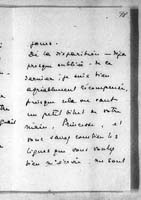 parus.
De la disparition — déjà
presque oubliée. de ce
dernier, je suis bien
agréablement récompensé,
puisque cela me vaut
un petit billet de votre
main, Princesse, et
vous savez combien les
lignes que vous voulez
bien m'écrire me sont